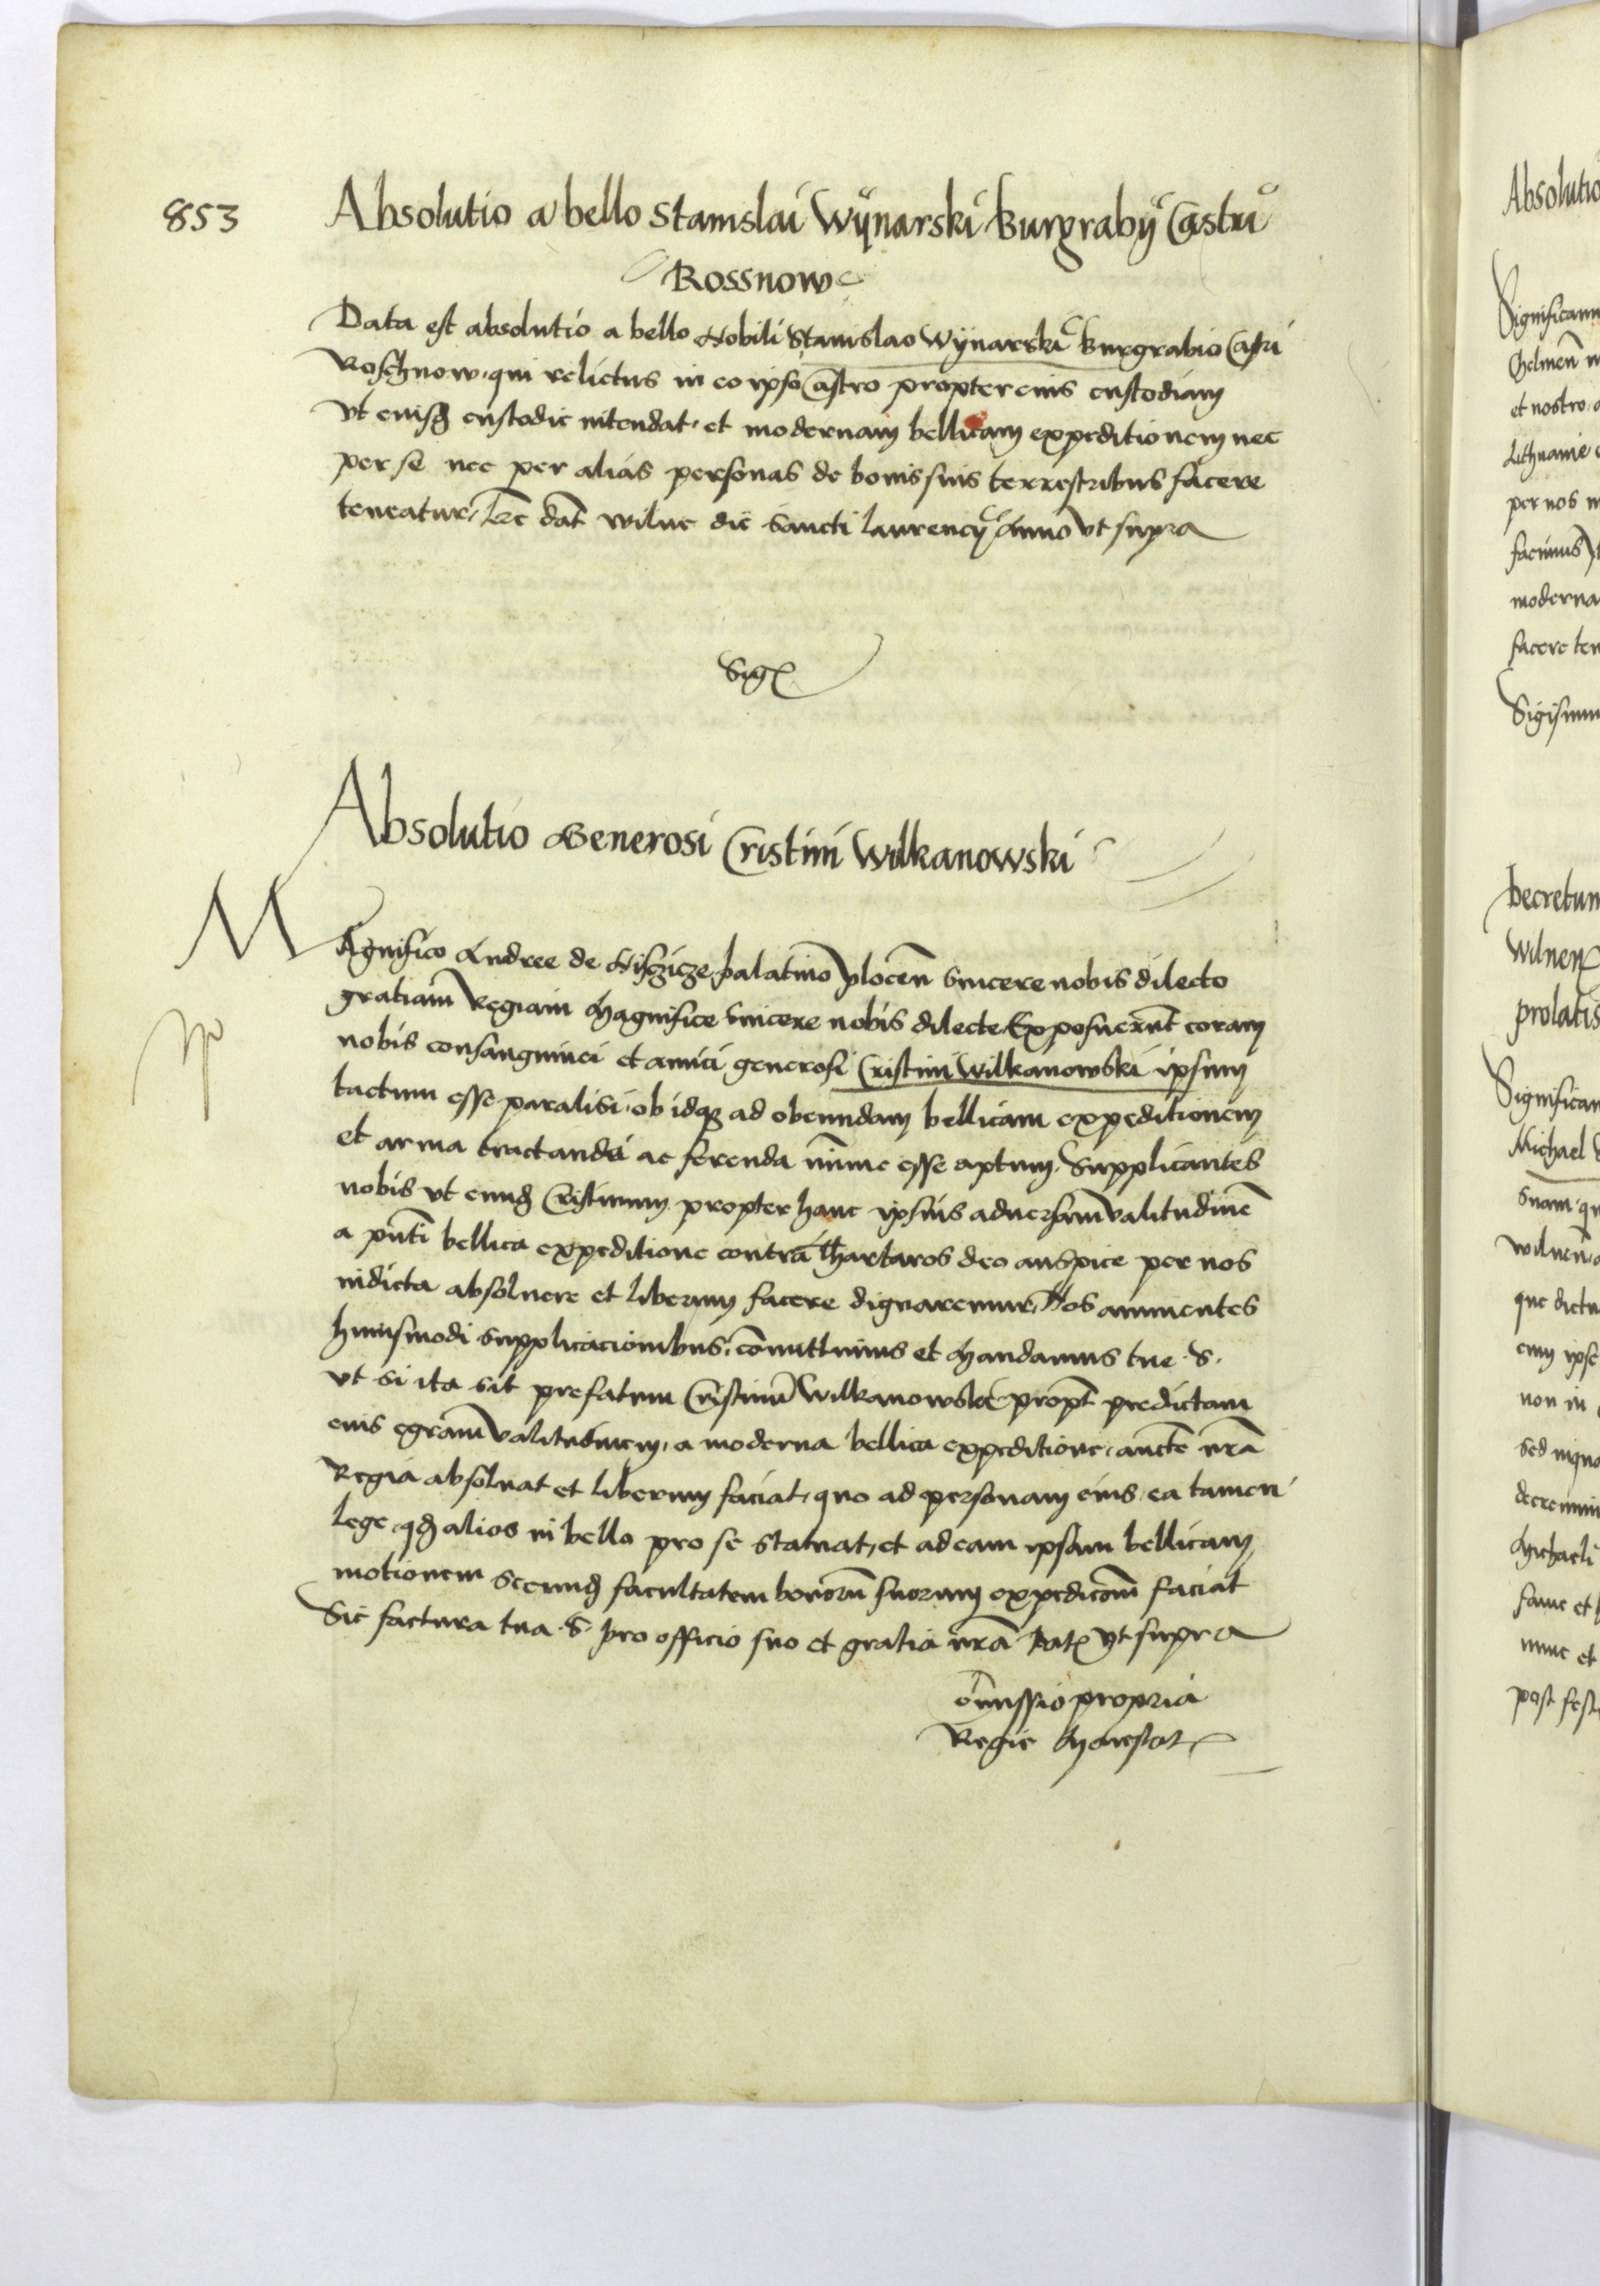 853
Absolutio a bello Stanislai Wÿnarski Burgrabÿ Castri
Rossnow
Data est absolutio a bello Nobili Stanislao Wÿnarski Burgrabio Castri
Roschnow qui relictus in eo ipso Castro propter eius custodiam
vt eiusd custodie intendat, et modernam bellicam expeditionem nec
per se nec per alias personas de bonis suis terrestribus facere
teneatur, Hec dat Wilne die Sancti Laurencÿ Anno vt supra
Sig
Absolutio Generosi Cristini Wilkanowski
MAgnifico Andree de Nisczicze palatino plocen sincere nobis dilecto
gratiam Regiam Magnifice sincere nobis dilecte Exposuerunt coram
nobis consanguinei et amici generosi Cristini Wilkanowski ipsum
tactum esse paralisi, ob idq ad obeundam bellicam expeditionem
et arma tractanda ac ferenda minime esse aptum, Supplicantes
nobis vt eund Cristinum propter hanc ipsius aduersam valitudine
a pnti bellica expeditione contra Thartaros deo auspice per nos
indicta absoluere et liberum facere dignaremur, Nos annuentes
huiusmodi supplicacionibus, comittimus et Mandamus tue S.
vt si ita sit prefatum Cristinu Wilkanowski propt predictam
eius egram valitudinem, a moderna bellica expeditione, aucte nra
Regia absoluat et liberum faciat, quo ad personam eius, ea tamen
lege qd alios in bello pro se statuat, et ad eam ipsam bellicam
motionem secund facultatem bonoru suorum expedicom faciat
Sic factura tua S. pro officio suo et gratia nra Dat vt supra
Comissio propria
Regie Maiestat
Absolutio
Significam
Chelmen
et nostro
Lithuanie
per nos
facimus
moderna
facere ten
Sigismun
Decretum
Wilnen
prolatis
Significam
Michael
suam qu
wilnen
que dictu
cum ipse
non in
sed
Michaeli
fame et
nunc et
post fest